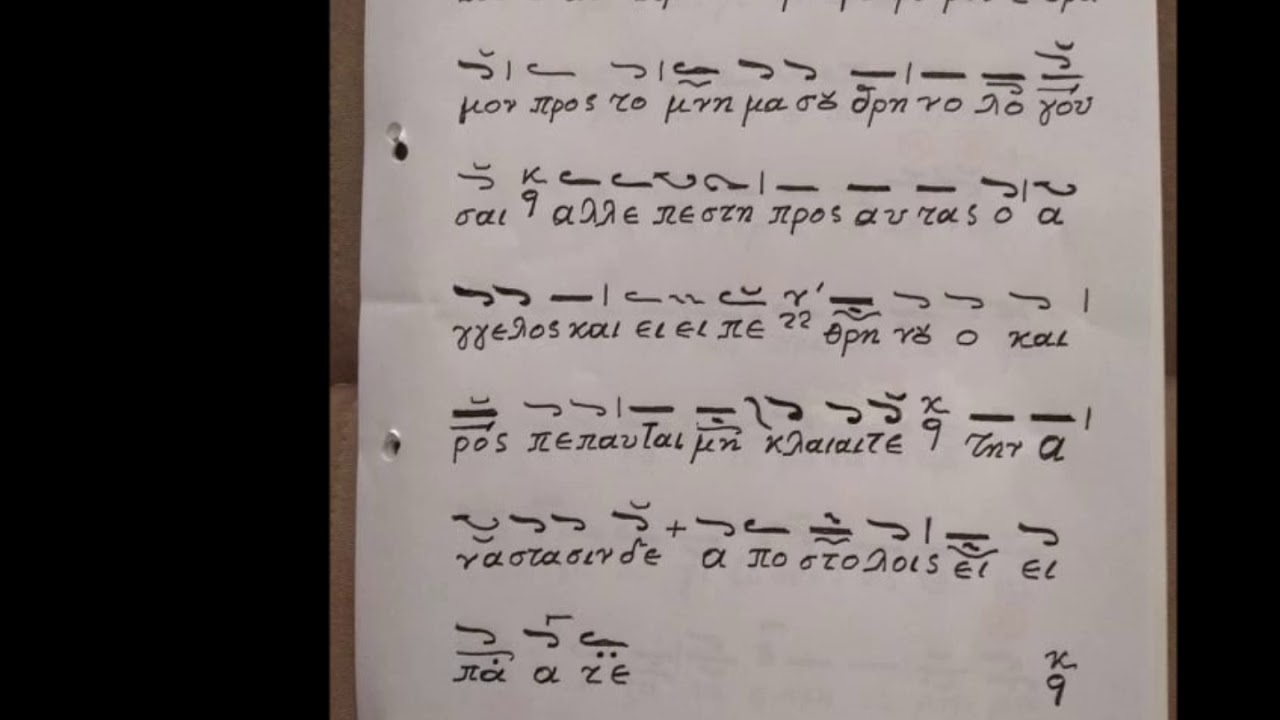 μον προς το μνη μα σȣ θρη νο λο γου
σαι ϙ αλλε πεστη προς αυ τας ο α
γγελος και ει ει πε θρη νȣ ο και
ρος πεπαυται μη κλαιαιτε ϙ την α
ναστασιν δε α πο στολοις ει ει
πα α τε
ϙ